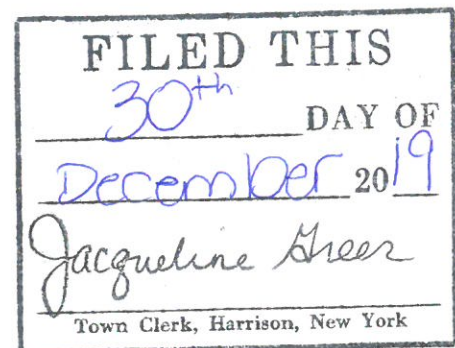 FILED THIS
30th DAY OF
December 2019
Jacqueline Greer
Town Clerk, Harrison, New York